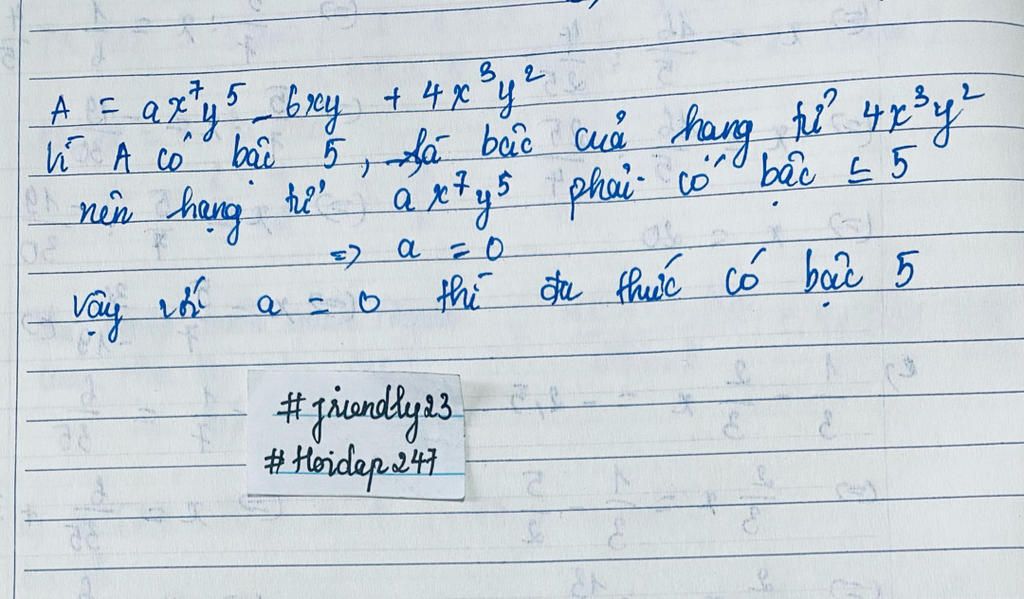 A = ax⁷y⁵ - 6xy + 4x³y²
Vì A có bậc 5, là bậc của hạng tử 4x³y²
nên hạng tử ax⁷y⁵ phải có bậc ≤ 5
=> a = 0
Vậy với a = 0 thì đa thức có bậc 5
#friendly23
#Hoidap247